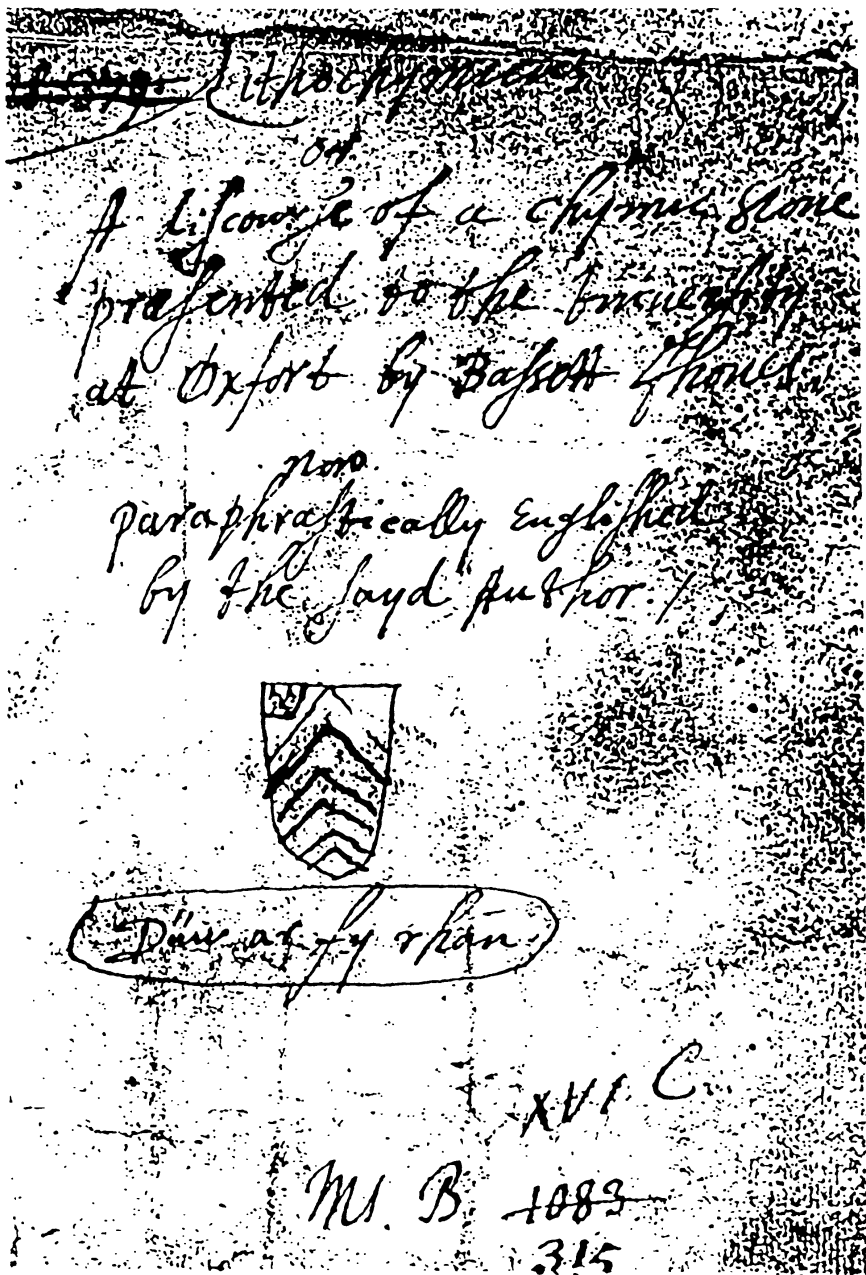 Lithochymicus
or
A discourse of a chymic stone
præsented to the University
at Oxford by Bassett Jhones.
now
paraphrastically Englished
by the sayd Author. /
Duw ar fy rhān.
XVI C.
Ms. B 1083
315